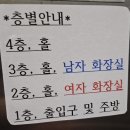 *층별안내*
4층. 홀
3층. 홀. 남자 화장실
2층. 홀. 여자 화장실
1층. 출입구 및 주방